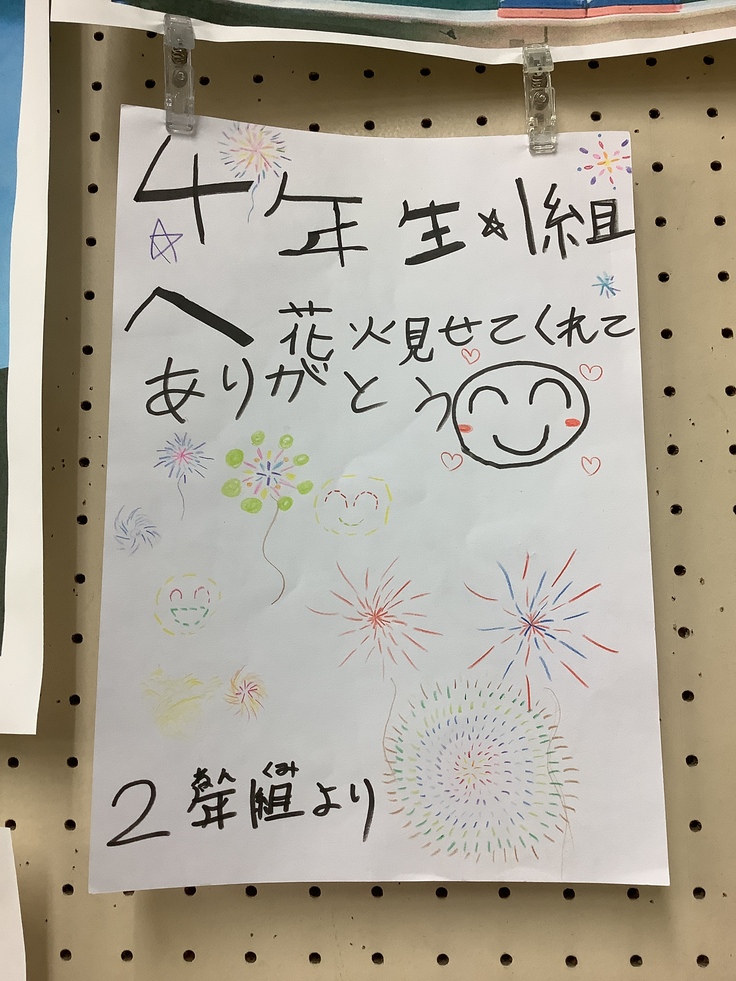 4年生☆1組
へ 花火見せてくれて
ありがとう
ねん くみ
2年1組より